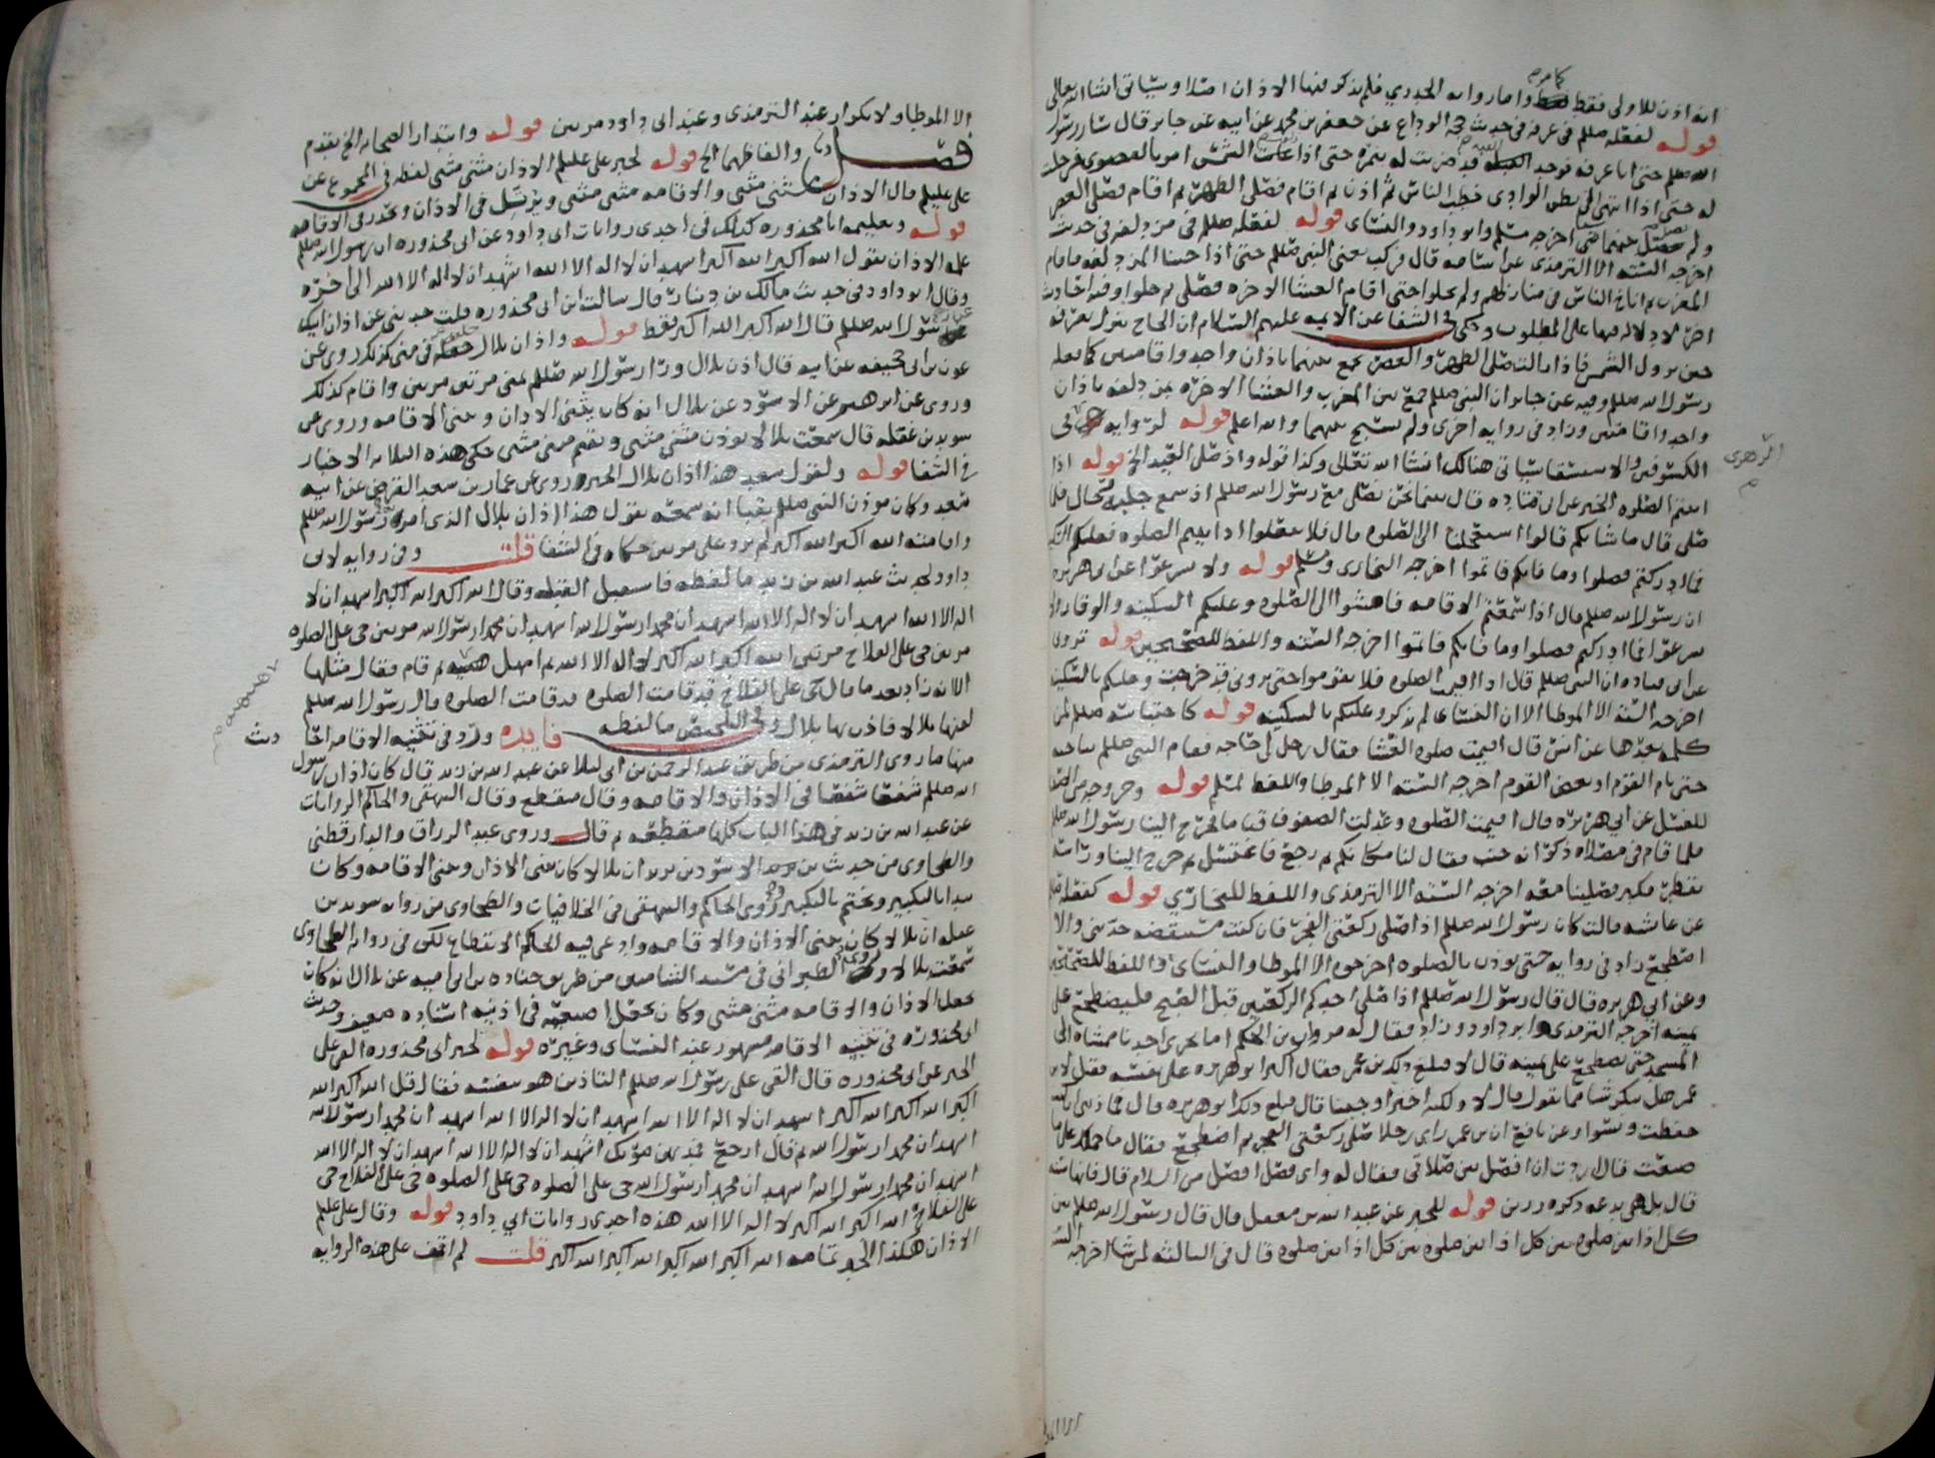 انه اذن للاولى فقط واما رواية الخدري فلم يذكر فيها الاذان اصلا وسياتي انشا الله تعالى
قوله لفعله صللم في عرفه في حديث حجه الوداع عن جعفر بن محمد عن ابيه عن جابر قال سار رسول
الله صللم حتى اتا عرفه فوجد القبه قد ضربت له بنمره حتى اذا زاغت الشمس امر بالقصوى فرحلت
له حتى اذا انتهى الى بطن الوادي خطب الناس ثم اذن ثم اقام فصلى الظهر ثم اقام فصلى العصر
ولم يصل بينهما شيا اخرجه مسلم وابو داود والنساى قوله لفعله صللم في مزدلفه في حديث
اخرجه السته الا الترمذي عن اسامه قال فركب يعني النبي صللم حتى اذا جينا المزدلفه فاقام
المغرب ثم اناخ الناس في منازلهم ولم يحلوا حتى اقام العشا الاخره فصلى ثم حلوا وفيه احاديث
اخر لا دلاله فيها على المطلوب وحكى في الشفا عن الايمه عليهم السلام ان الحاج ينزل بعرفه
حين تزول الشمس فاذا زالت صلى الظهر والعصر جمع بينهما باذان واحد واقامتين كما فعله
رسول الله صللم وفيه عن جابر ان النبي صللم جمع بين المغرب والعشا الاخره بمزدلفه باذان
واحد واقامتين وزاد في رواية اخرى ولم يسبح بينهما والله اعلم قوله لرواية الزهري في
الكسوفين والاستسقا سياتي هنالك انشا الله تعالى وكذا قوله واذ صلى العيد الخ قوله اذا
اتيتم الصلوه الخبر عن ابي قتاده قال بينما نحن نصلي مع رسول الله صللم اذ سمع جلبة رجال فلما
صلى قال ما شانكم قالوا استعجلنا الى الصلوه قال فلا تفعلوا اذا اتيتم الصلوه فعليكم السكينه
فما ادركتم فصلوا وما فاتكم فاتموا اخرجه البخاري ومسلم قوله ولا تسرعوا عن ابي هريره
ان رسول الله صللم قال اذا سمعتم الاقامه فامشوا الى الصلوه وعليكم السكينه والوقار ولا
تسرعوا فما ادركتم فصلوا وما فاتكم فاتموا اخرجه السته واللفظ للصحيحين قوله تروني
عن ابي قتاده ان النبي صللم قال اذا اقيمت الصلوه فلا تقوموا حتى تروني قد خرجت وعليكم بالسكينه
اخرجه السته الا الموطا الا ان النساى لم يذكر وعليكم بالسكينه قوله كاحتباسه صللم لمن
كلمه بعدها عن انس قال اقيمت صلوه العشا فقال رجل لي حاجه فقام النبي صللم يناجيه
حتى نام القوم او بعض القوم اخرجه السته الا الموطا واللفظ لمسلم قوله وخروجه من الصلاه
للغسل عن ابي هريره قال اقيمت الصلوه وعدلت الصفوف قياما فخرج الينا رسول الله صللم
فلما قام في مصلاه ذكر انه جنب فقال لنا مكانكم ثم رجع فاغتسل ثم خرج الينا وراسه
يقطر فكبر فصلينا معه اخرجه السته الا الترمذي واللفظ للبخاري قوله كفعله
عن عايشه قالت كان رسول الله صللم اذا صلى ركعتي الفجر فان كنت مستيقضه حدثني والا
اضطجع زاد في رواية حتى يوذن بالصلوه اخرجوه الا الموطا والنساى واللفظ للصحيحين
وعن ابي هريره قال قال رسول الله صللم اذا صلى احدكم الركعتين قبل الصبح فليضطجع على
يمينه اخرجه الترمذي وابو داود وزاد فقال له مروان بن الحكم اما يجزى احدنا ممشاه الى
المسجد حتى يضطجع على يمينه قال لا فبلغ ذلك بن عمر فقال اكثر ابو هريره على نفسه فقيل لابن
عمر هل تنكر شيا مما يقول قال لا ولكنه اجترا وجبنا قال فبلغ ذلك ابو هريره قال فما ذنبي ان كنت
حفظت ونسوا وعن نافع ان بن عمر راى رجلا صلى ركعتي الفجر ثم اضطجع فقال ما حملك على ما
صنعت قال اردت ان افصل بين صلاتي فقال له واي فصل افضل من السلام قال فانها سنه
قال بل هي بدعه ذكره رزين قوله للخبر عن عبد الله بن مغفل قال قال رسول الله صللم بين
كل اذانين صلوه بين كل اذانين صلوه بين كل اذانين صلوه قال في الثالثه لمن شا اخرجه السته
الزهري
الا الموطا ولا تكرار عند الترمذي وعند ابي داود مرتين قوله وابتدار الصحابه الخ تقدم
فصل والفاظهما الخ قوله لخبر علي عليلم الاذان مثنى مثنى لفظه في المجموع عن
علي عليلم قال الاذان مثنى مثنى والاقامه مثنى مثنى ويرتل في الاذان ويحدر في الاقامه
قوله وتعليمه ابا محذوره كذلك في احدى روايات ابي داود عن ابي محذوره ان رسول الله صللم
علمه الاذان يقول الله اكبر الله اكبر اشهد ان لا اله الا الله اشهد ان لا اله الا الله الى اخره
وقال ابو داود في حديث مالك بن دينار قال سالت ابن ابي محذوره قلت حدثني عن اذان ابيك
عن رسول الله صللم قال الله اكبر الله اكبر فقط قوله واذان بلال خلفه في منى كذلك روى عن
عون بن ابي جحيفه عن ابيه قال اذن بلال ورا رسول الله صللم بمنى مرتين مرتين واقام كذلك
وروى عن ابرهيم عن الاسود عن بلال انه كان يثني الاذان ويثني الاقامه وروى عن
سويد بن غفله قال سمعت بلالا يوذن مثنى مثنى ويقيم مثنى مثنى حكى هذه الثلاثه الاخبار
في الشفا قوله ولقول سعد هذا اذان بلال الخبر وروى عن عمار بن سعد القرظي عن ابيه
سعد وكان موذن النبي صللم بقبا انه سمعه يقول هذا اذان بلال الذي امره رسول الله صللم
واقامته الله اكبر الله اكبر لم يزد على مرتين حكاه في الشفا قلت وفي رواية لابي
داود لحديث عبد الله بن زيد ما لفظه فاستقبل القبله وقال الله اكبر الله اكبر اشهد ان لا
اله الا الله اشهد ان لا اله الا الله اشهد ان محمدا رسول الله اشهد ان محمدا رسول الله مرتين حي على الصلوه
مرتين حي على الفلاح مرتين الله اكبر الله اكبر لا اله الا الله ثم امهل هنيه ثم قام فقال مثلها
الا انه زاد بعد ما قال حي على الفلاح قد قامت الصلوه قد قامت الصلوه قال رسول الله صللم
لقنها بلالا فاذن بها بلال وفي التلخيص ما لفظه فايده ورد في تثنيه الاقامه احا
ديث
منها ما روى الترمذي من طريق عبد الرحمن بن ابي ليلا عن عبد الله بن زيد قال كان اذان رسول
الله صللم شفعا شفعا في الاذان والاقامه وقال منقطع وقال البيهقي والحاكم الروايات
عن عبد الله بن زيد في هذا الباب كلها منقطعه ثم قال وروى عبد الرزاق والدارقطني
والطحاوي من حديث الاسود بن يزيد ان بلالا كان يثني الاذان ويثني الاقامه وكان
يبدا بالتكبير ويختم بالتكبير وروى الحاكم والبيهقي في الخلافيات والطحاوي من رواية سويد بن
غفله ان بلالا كان يثني الاذان والاقامه وادعى فيه الحاكم الانقطاع لكن في رواية الطحاوي
سمعت بلالا وروى الطبراني في مسند الشاميين من طريق جناده بن ابي اميه عن بلال انه كان
يجعل الاذان والاقامه مثنى مثنى وكان يجعل اصبعيه في اذنيه اسناده ضعيف وحديث
ابي محذوره في تثنيه الاقامه مشهور عند النساى وغيره قوله لخبر ابي محذوره القى علي
الخبر عن ابي محذوره قال القى علي رسول الله صللم التاذين هو بنفسه فقال قل الله اكبر الله
اكبر الله اكبر الله اكبر اشهد ان لا اله الا الله اشهد ان لا اله الا الله اشهد ان محمدا رسول الله
اشهد ان محمدا رسول الله ثم قال ارجع فمد من صوتك اشهد ان لا اله الا الله اشهد ان لا اله الا الله
اشهد ان محمدا رسول الله اشهد ان محمدا رسول الله حي على الصلوه حي على الصلوه حي على الفلاح حي
على الفلاح الله اكبر الله اكبر لا اله الا الله هذه احدى روايات ابي داود قوله وقال علي عليلم
الاذان هكذا الخبر تمامه الله اكبر الله اكبر الله اكبر الله اكبر قلت لم اقف على هذه الرواية